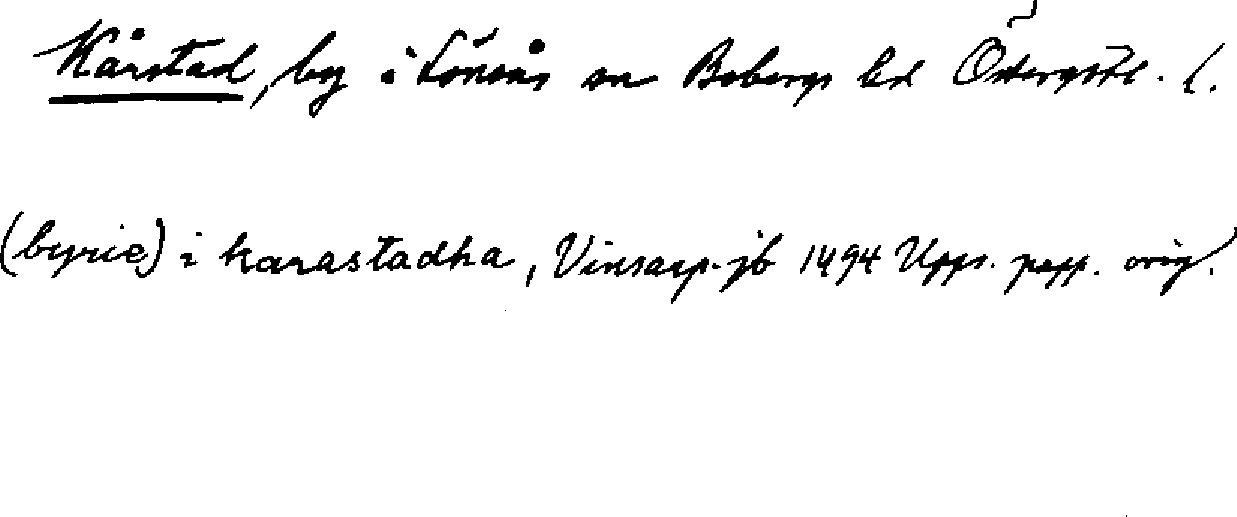 Kårstad, by i Lönsås sn Bobergs hd Östergötl. l.
(byrie) i karastadha, Vinsarp. jb 1494 Upps. papp. orig.